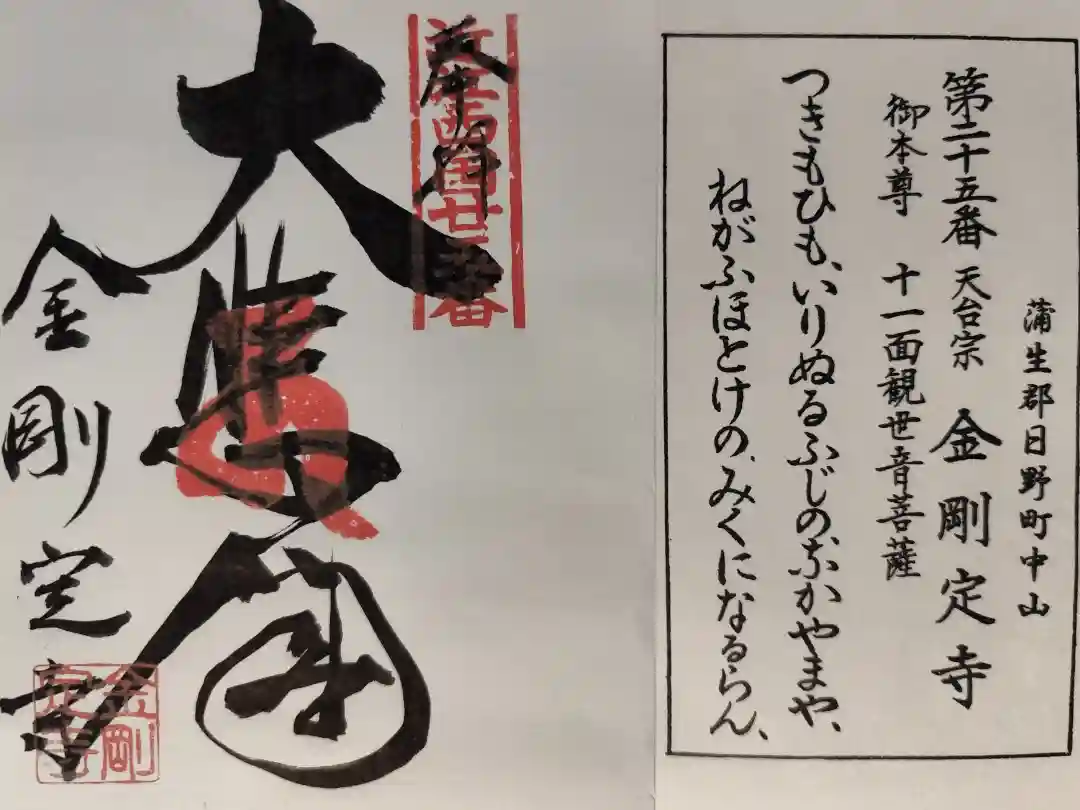 蒲生郡日野町中山
第二十五番 天台宗 金剛定寺
御本尊 十一面観世音菩薩
つきもひも、いりぬるふじの、なかやまや、
ねがふほとけの、みくになるらん、
奉拝
近江西国廿五番
大悲閣
金剛定寺
金剛定寺